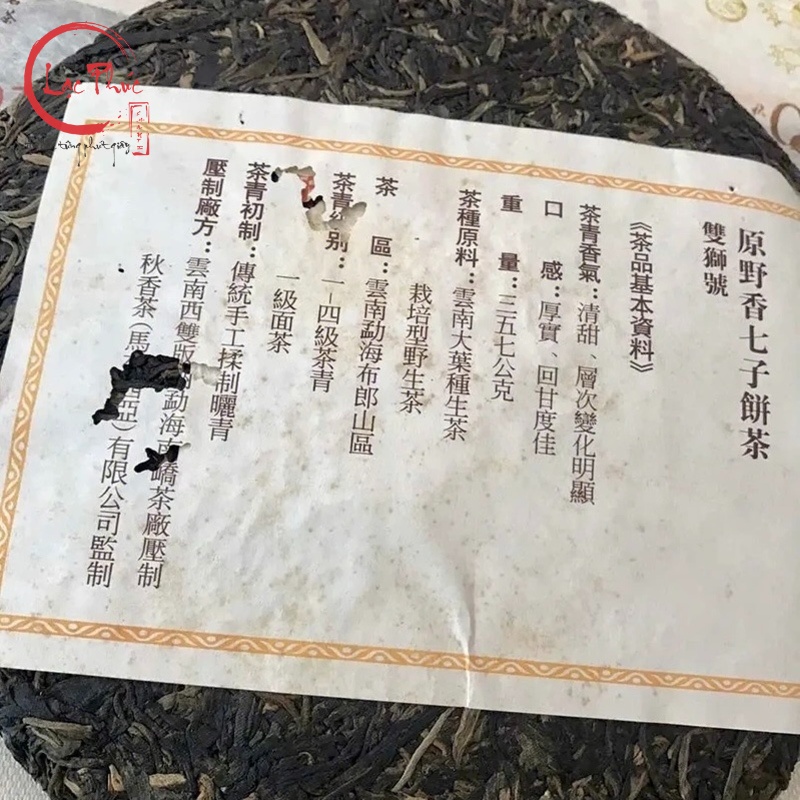 Lạc Phúc
từng phút giây
原野香七子餅茶
雙獅號
《茶品基本資料》
茶青香氣：清甜、層次變化明顯
口感：厚實、回甘度佳
重量：三五七公克
茶種原料：雲南大葉種生茶
栽培型野生茶
茶區：雲南勐海布郎山區
茶青級别：一–四級茶青
一級面茶
茶青初制：傳統手工揉制曬青
壓制廠方：雲南西雙版 勐海南嶠茶廠壓制
秋香茶(馬 )有限公司監制